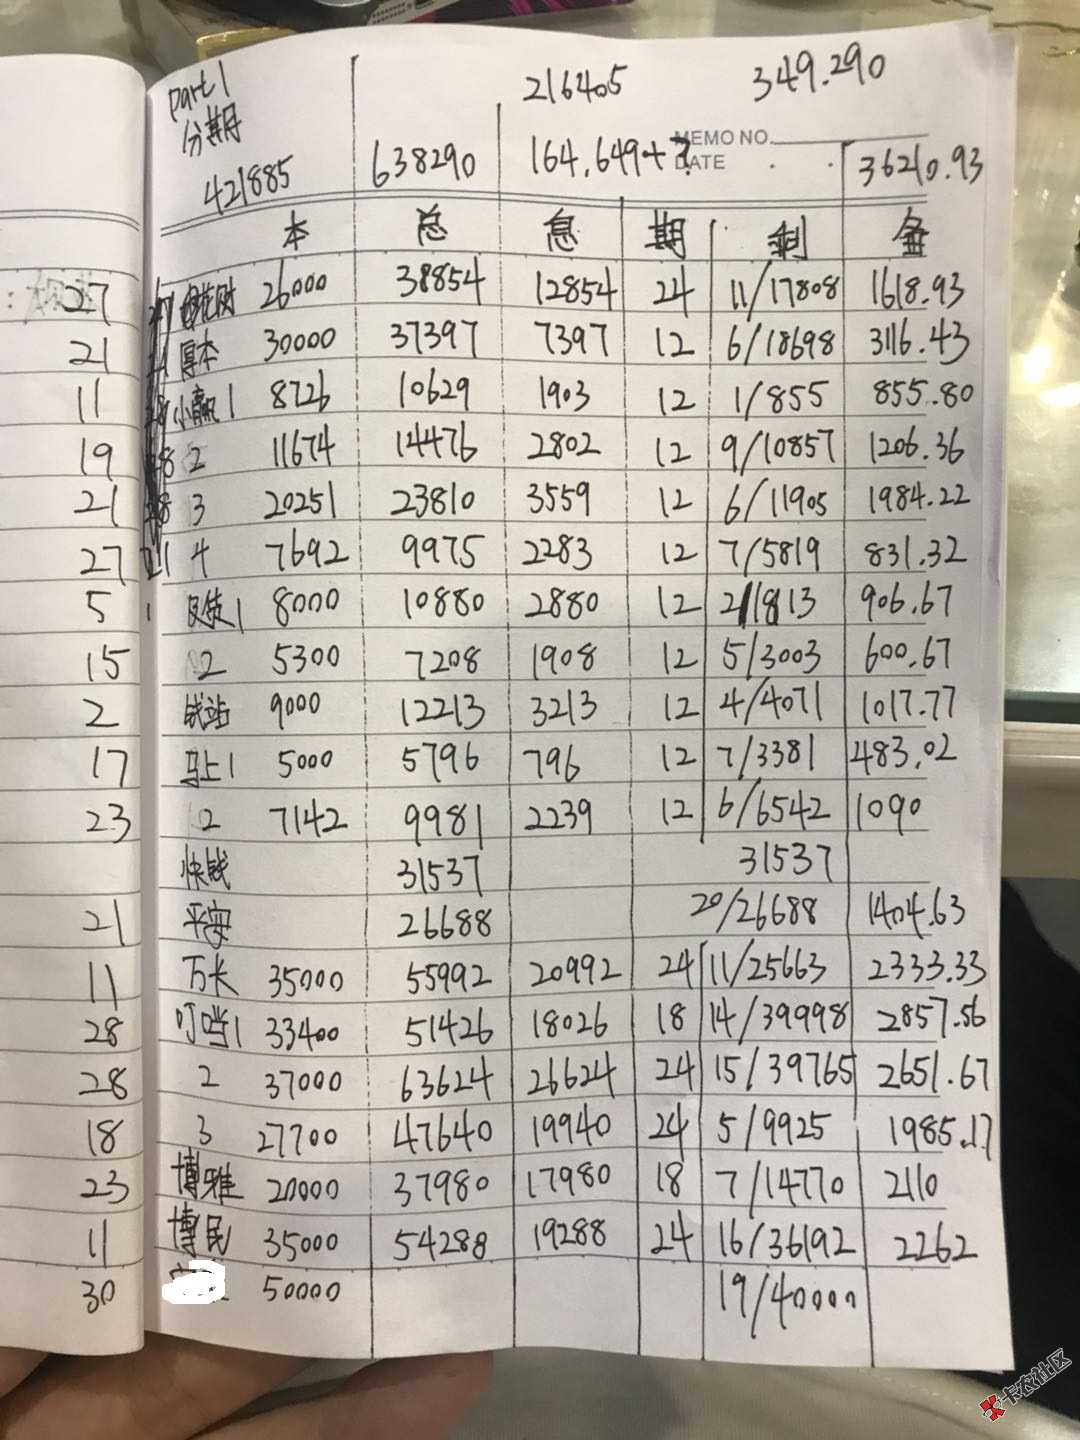 Part 1
分期
216405 349.290
MEMO NO.
DATE
421885 638290 164.649+? 36210.93
本 总 息 期 剩 金
27 26000 38854 12854 24 11/17808 1618.93
21 厚本 30000 37397 7397 12 6/18698 3116.43
11 小赢1 8726 10629 1903 12 1/855 855.80
19 2 11674 14476 2802 12 9/10857 1206.36
21 3 20251 23810 3559 12 6/11905 1984.22
27 21 4 7692 9975 2283 12 7/5819 831.32
5 1 及贷1 8000 10880 2880 12 2/1813 906.67
15 2 5300 7208 1908 12 5/3003 600.67
2 钱站 9000 12213 3213 12 4/4071 1017.77
17 马上1 5000 5796 796 12 7/3381 483.02
23 2 7142 9981 2239 12 6/6542 1090
快钱 31537 31537
21 平安 26688 20/26688 1404.63
11 万长 35000 55992 20992 24 11/25663 2333.33
28 叮当1 33400 51426 18026 18 14/39998 2857.56
28 2 37000 63624 26624 24 15/39765 2651.67
18 3 27700 47640 19940 24 5/9925 1985.17
23 博雅 20000 37980 17980 18 7/14770 2110
11 博民 35000 54288 19288 24 16/36192 2262
30 50000 19/40000
卡农社区